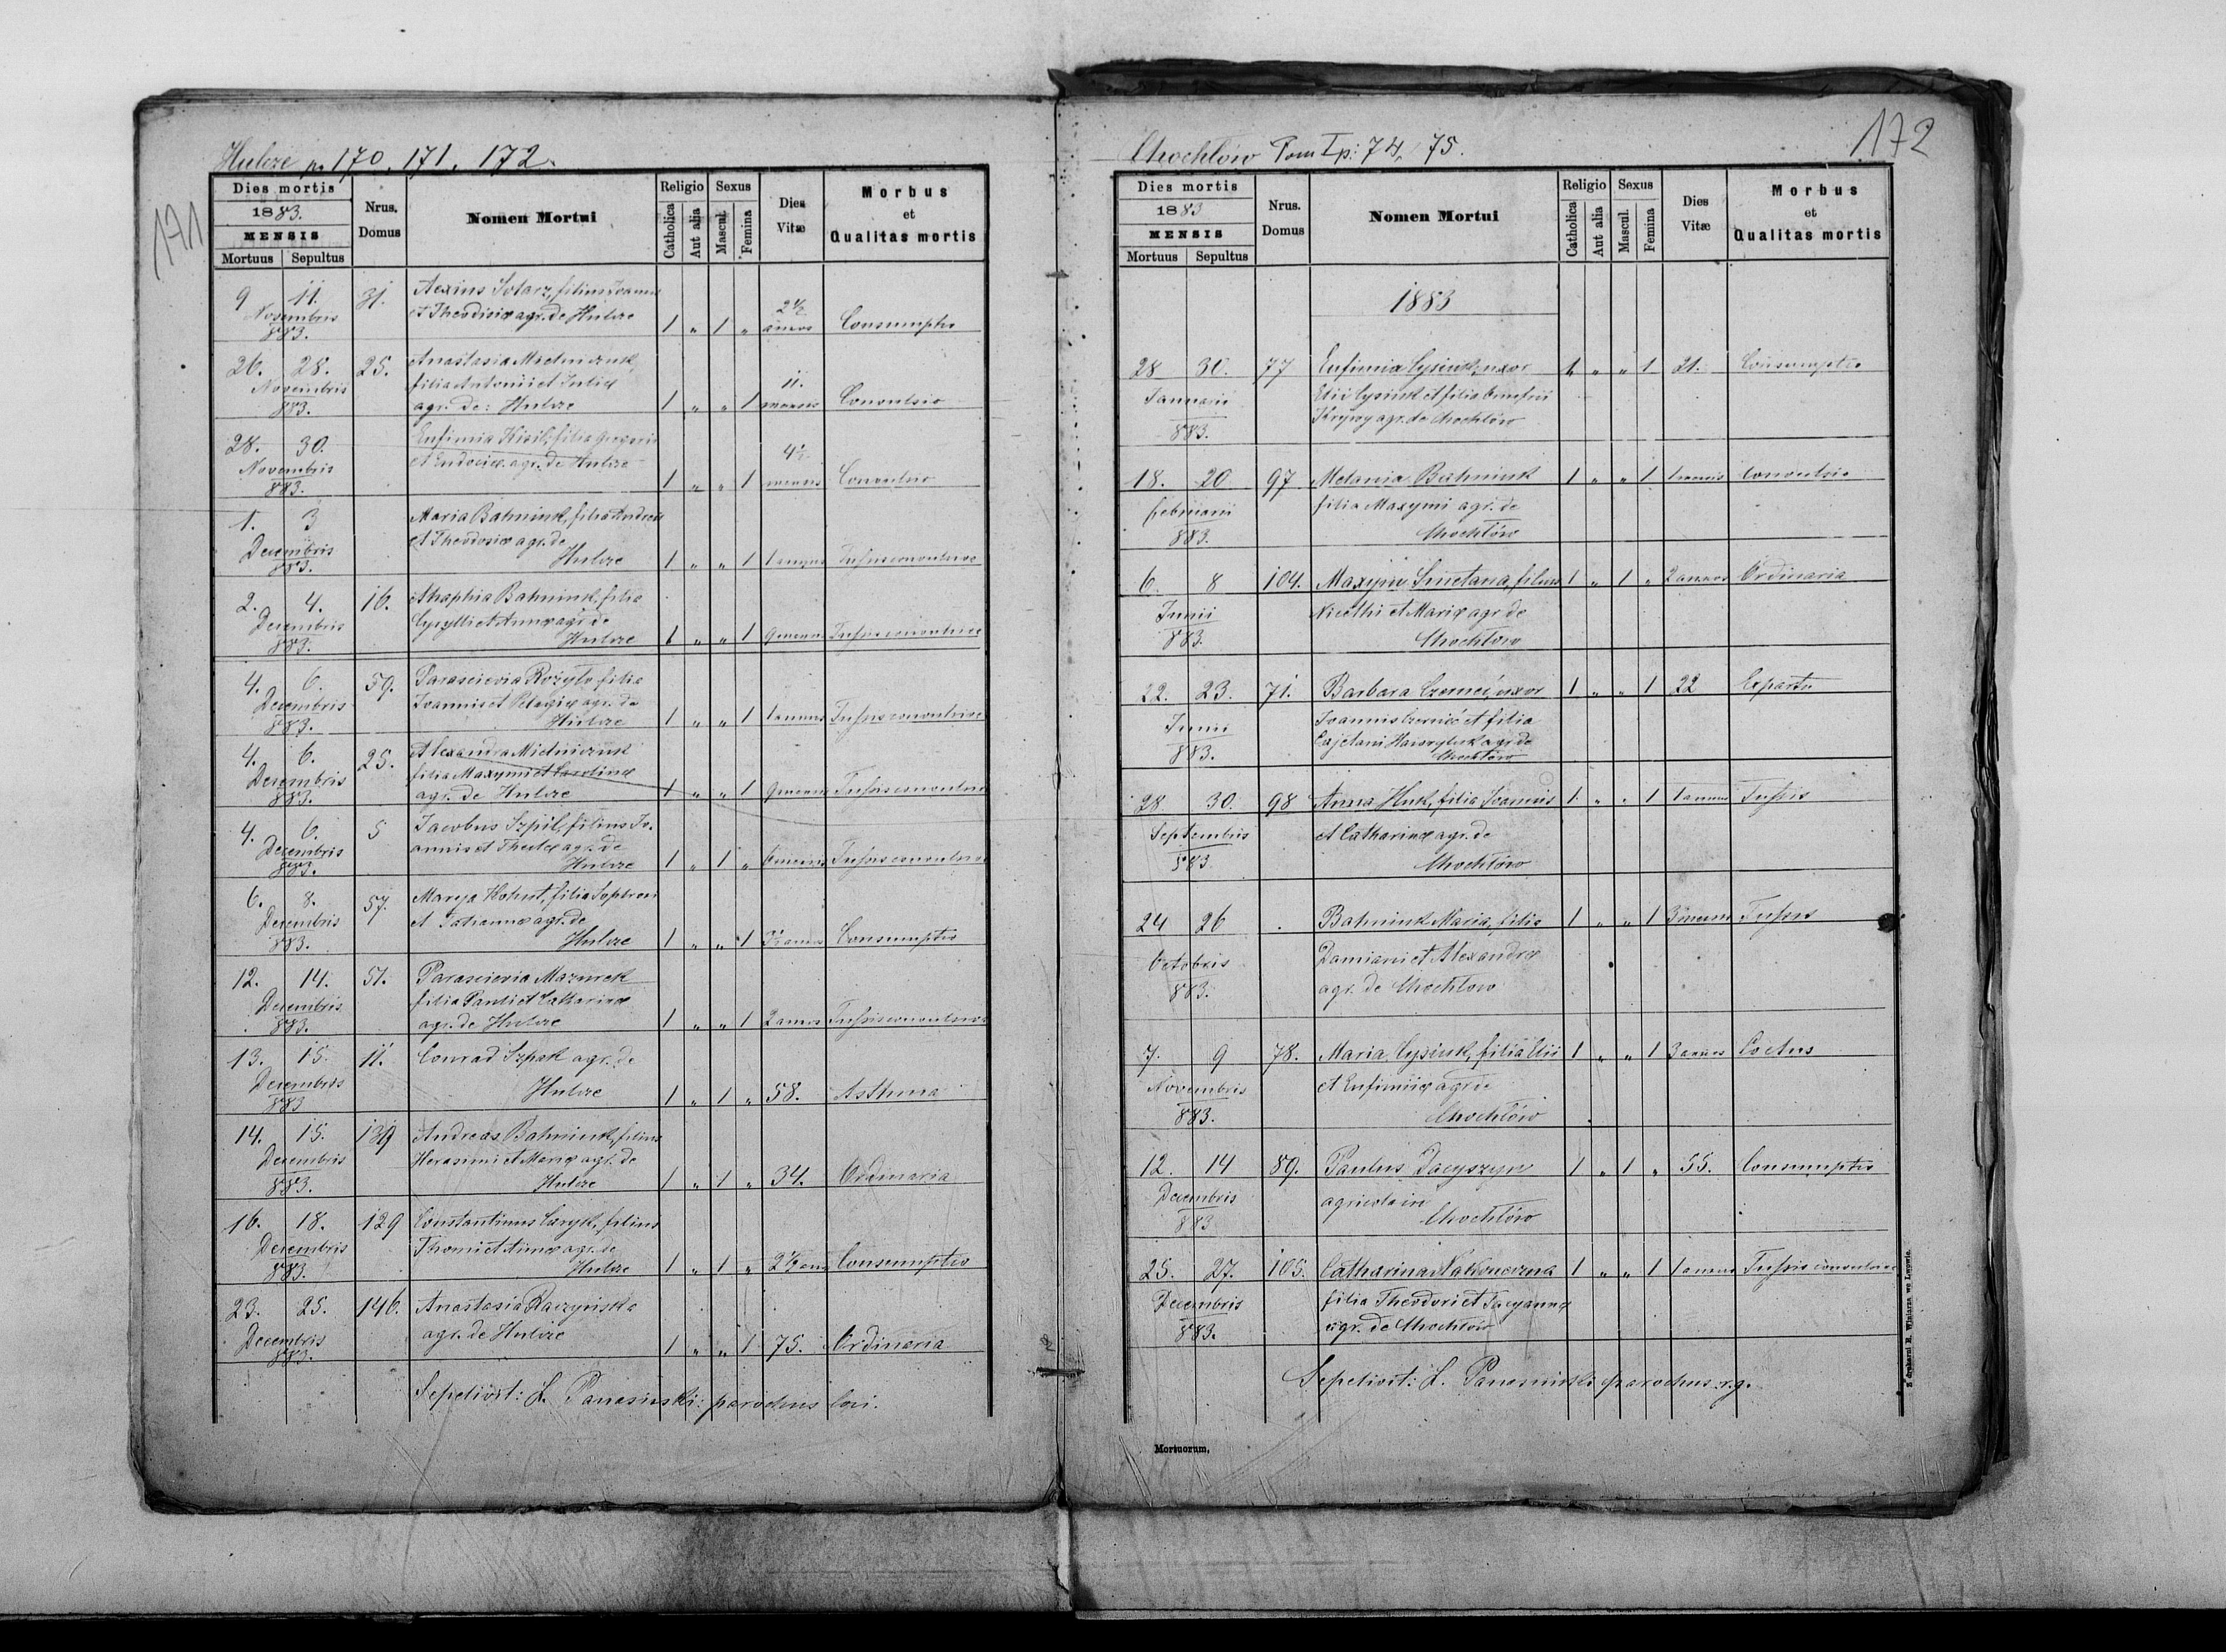 Hulcze p. 170. 171. 172.
171
Dies mortis
1883.
MENSIS
Mortuus Sepultus
Nrus. Domus
Nomen Mortui
Religio
Catholica Aut alia
Sexus
Mascul. Femina
Dies Vitæ
Morbus et Qualitas mortis
9 11. 31. Alexius Solarz, filius Joannis
Novembris et Theodisiæ agr. de Hulcze 1 „ 1 „ 2½ annos Consumptio
883.
26. 28. 25. Anastasia Mielniczuk,
Novembris filia Antonii et Juliæ 11.
883. agr. de: Hulcze 1 „ „ 1 mensis Convulsio
28. 30. Eufimia Kisil, filia Gregorii
Novembris et Eudociæ agr. de Hulcze 4½
883. 1 „ „ 1 mensis Convulsio
1. 3 Maria Bahniuk, filia Andreæ
Decembris et Theodosiæ agr. de
883. Hulcze 1 „ „ 1 1 annus Tussis convulsiva
2. 4. 16. Ahaphia Bahniuk, filia
Decembris Cyrylli et Annæ agr. de
883. Hulcze 1 „ „ 1 9 menses Tussis convulsiva
4. 6. 59. Parascievia Rożyło filia
Decembris Joannis et Pelagiæ agr. de
883. Hulcze 1 „ „ 1 1 annus Tussis convulsiva
4. 6. 25. Alexandra Mielniczuk
Decembris filia Maxymi et Carolinæ
883. agr. de Hulcze 1 „ „ 1 9 menses Tussis convulsiva
4. 6. 5 Jacobus Szpil, filius Jo-
Decembris annis et Theclæ agr. de
883. Hulcze 1 „ 1 „ 6 menses Tussis convulsiva
6. 8. 57. Marya Kohut, filia Sophron
Decembris et Tatiannæ agr. de
883. Hulcze 1 „ „ 1 annus Consumptio
12. 14. 51. Parascievia Mazurek
Decembris filia Pauli et Catharinæ
883. agr. de Hulcze 1 „ „ 1 2 annos Tussis convulsiva
13. 15. 11. Conrad Szpak agr. de
Decembris Hulcze 1 „ 1 „ 58. Asthma
883
14. 15. 139 Andreas Bahniuk, filius
Decembris Herasimi et Mariæ agr. de
883. Hulcze 1 „ 1 „ 34. Ordinaria
16. 18. 129 Constantinus Caryk, filius
Decembris Thomi et Annæ agr. de
883. Hulcze 1 „ 1 „ 2½ ann Consumptio
23. 25. 146. Anastasia Raczyńska
Decembris agr. de Hulcze 1 „ „ 1 75. Ordinaria
883.
Sepelivit: L. Panasiński: parochus loci.
Chochłów Tom I p: 74, 75.
172
Dies mortis
1883
MENSIS
Mortuus Sepultus
Nrus. Domus
Nomen Mortui
Religio
Catholica Aut alia
Sexus
Mascul. Femina
Dies Vitæ
Morbus et Qualitas mortis
1883
28 30. 77 Eufimia Łysiuk, uxor 1 „ „ 1 21. Consumptio
Januarii Elii Łysiuk et filia Onufrii
883. agr. de Chochłów
18. 20 97 Melania Bahniuk 1 „ „ 1 Convulsio
Februarii filia Maxymi agr. de
883. Chochłów
6. 8 104. Maxym Smetana, filius 1 „ 1 „ 2 annos Ordinaria
Junii Nicethi et Mariæ agr de
883. Chochłów
22. 23. 71. Barbara Czernić, uxor 1 „ „ 1 22 Ex partu
Junii Joannis Czernić et filia
883. Cajetani Hawryluk agr. de
Chochłów
28 30. 98 Anna Huk, filia Joannis 1 „ „ 1 1 annus Tussis
Septembris et Catharinæ agr. de
883 Chochłów
24 26 Bahniuk Maria, filia 1 „ „ 1 3 menses Tussis
Octobris Damiani et Alexandræ
883. agr. de Chochłow
7. 9 78. Maria Łysiuk, filia Elii 1 „ „ 1 3 annos
Novembris et Eufimiiæ agr. de
883. Chochłów
12. 14 89. Paulus Dacyszyn 1 „ 1 „ 55. Consumptio
Decembris agricola in
883 Chochłów
25. 27. 105. Catharina Nakoneczna 1 „ „ 1 1 annus Tussis convulsiva
Decembris filia Theodori et Tacyannæ
883. agr. de Chochłów
Sepelivit: L. Panasiński parochus r.g.
Mortuorum.
Z drukarni H. Winiarza we Lwowie.